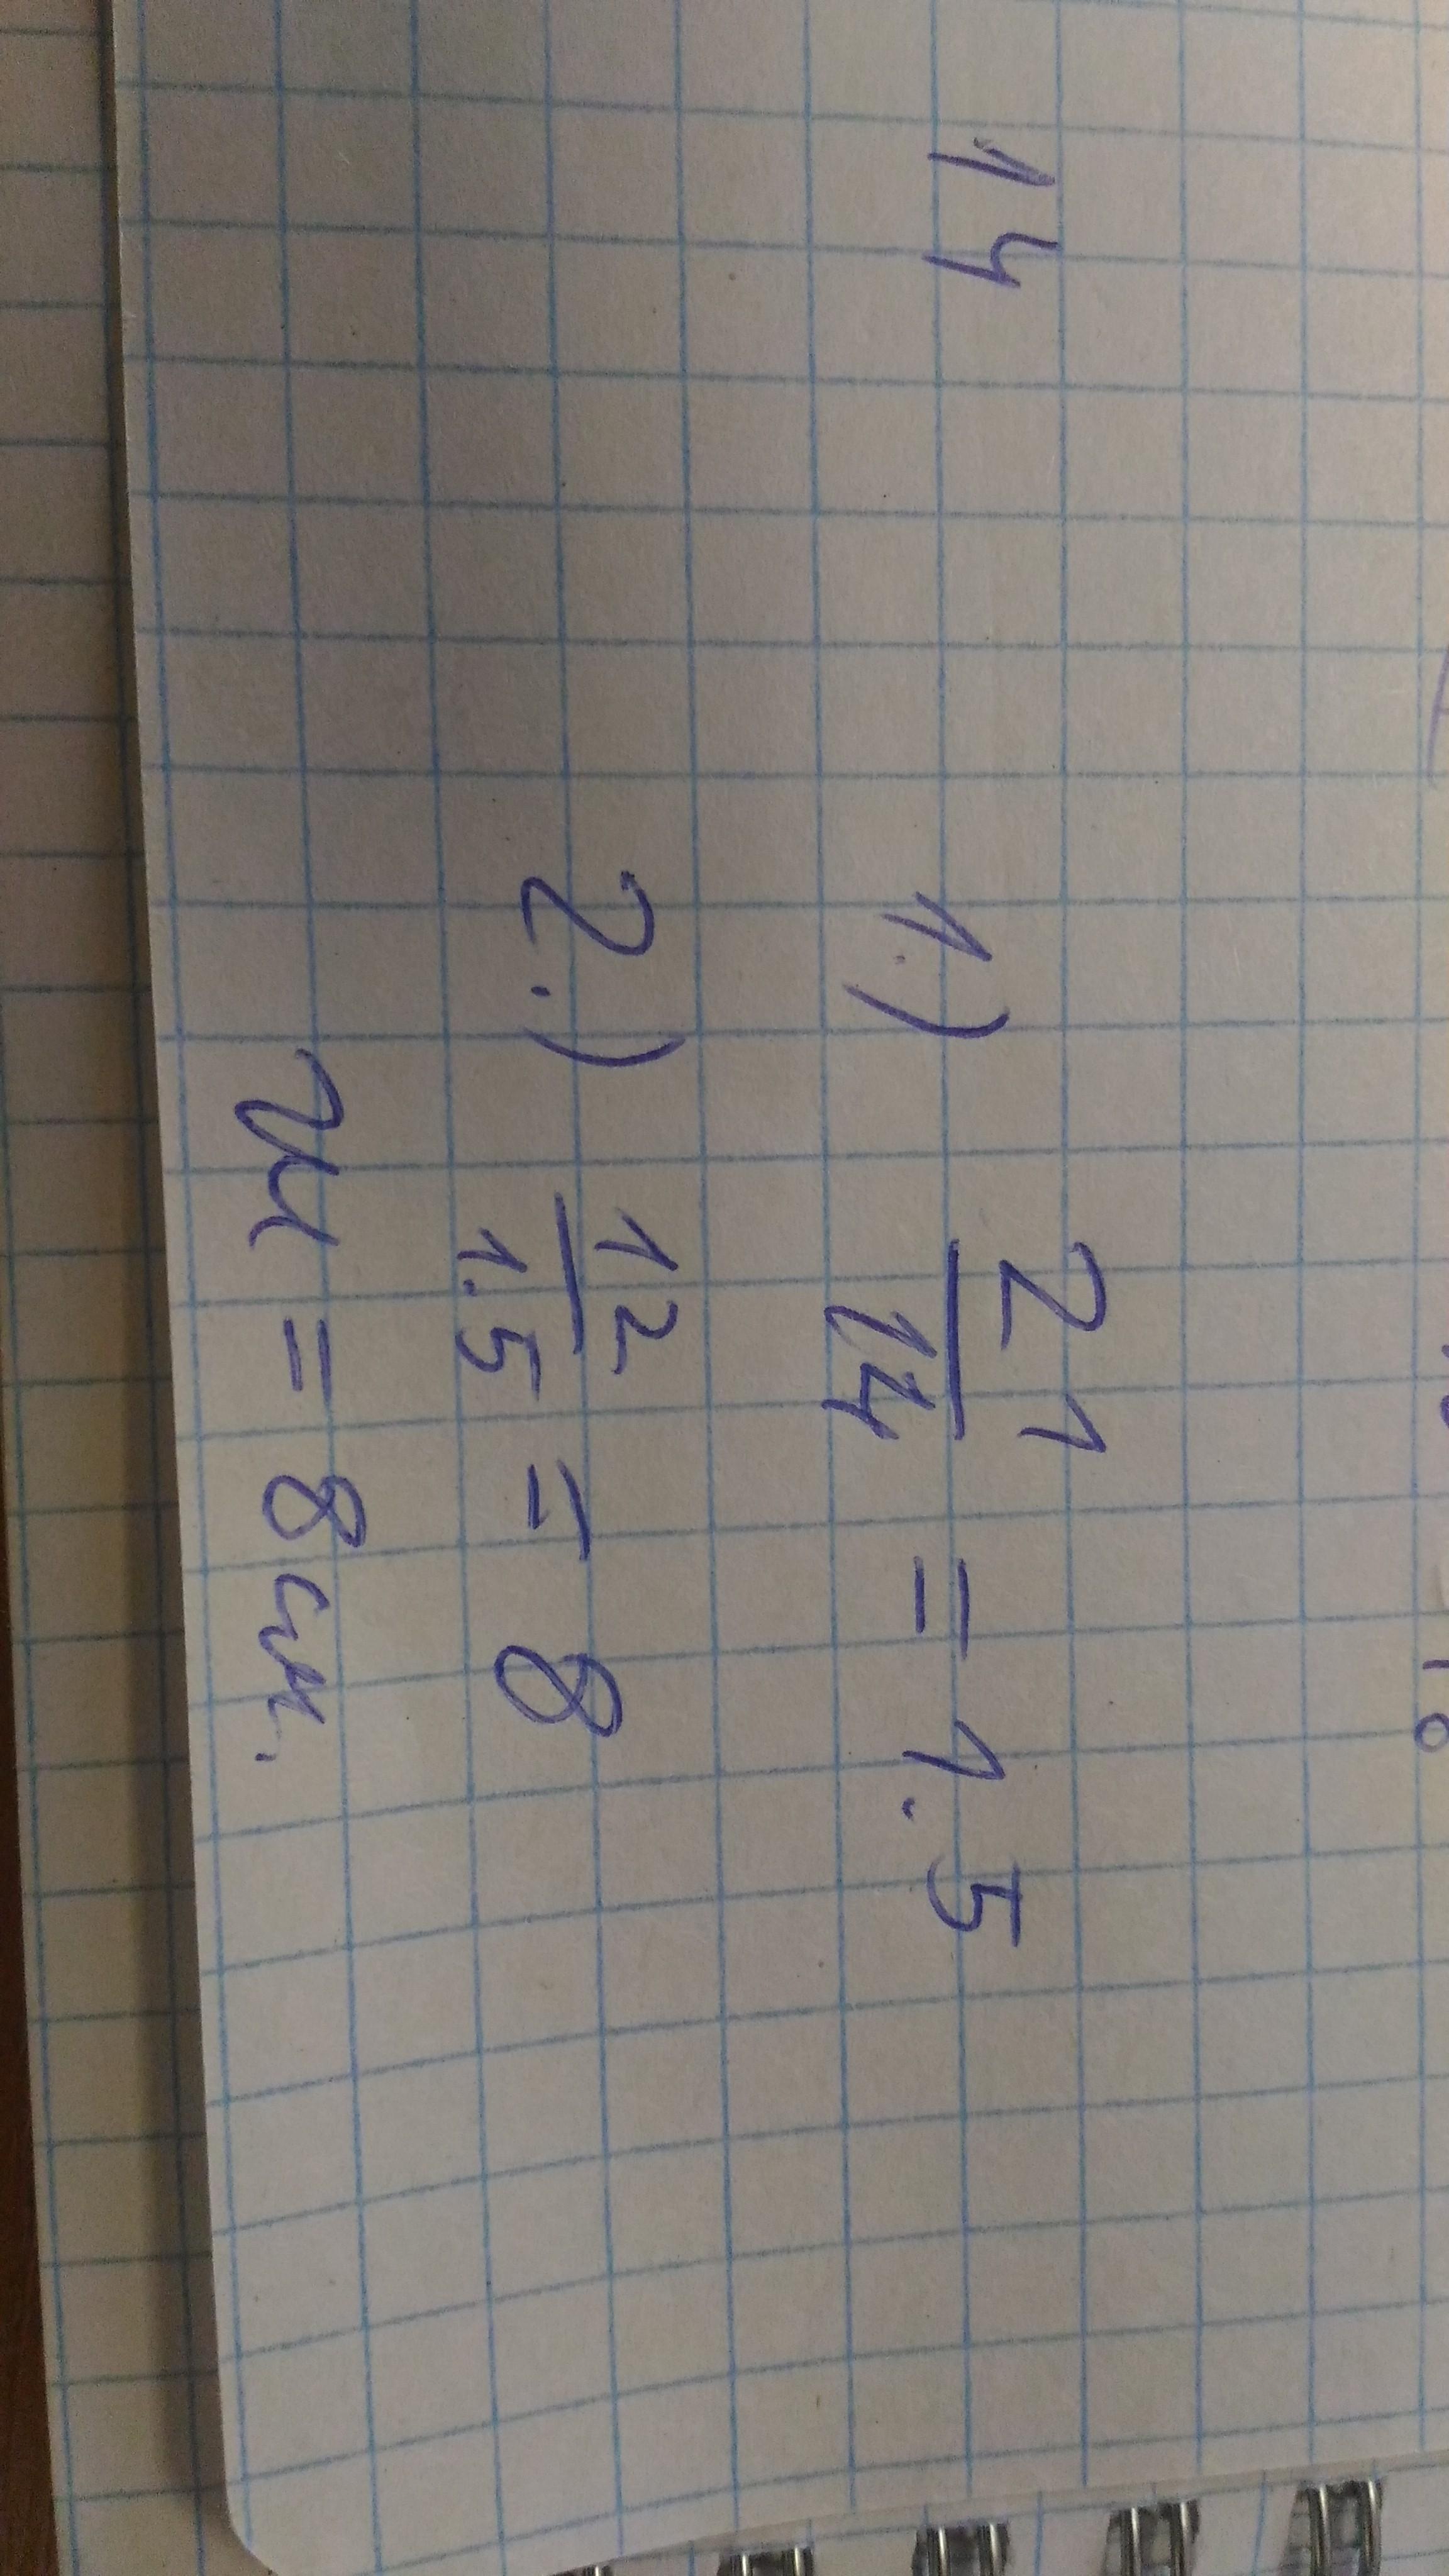 14
1.) 21/14 = 1.5
2.) 12/1.5 = 8
x = 8 см.